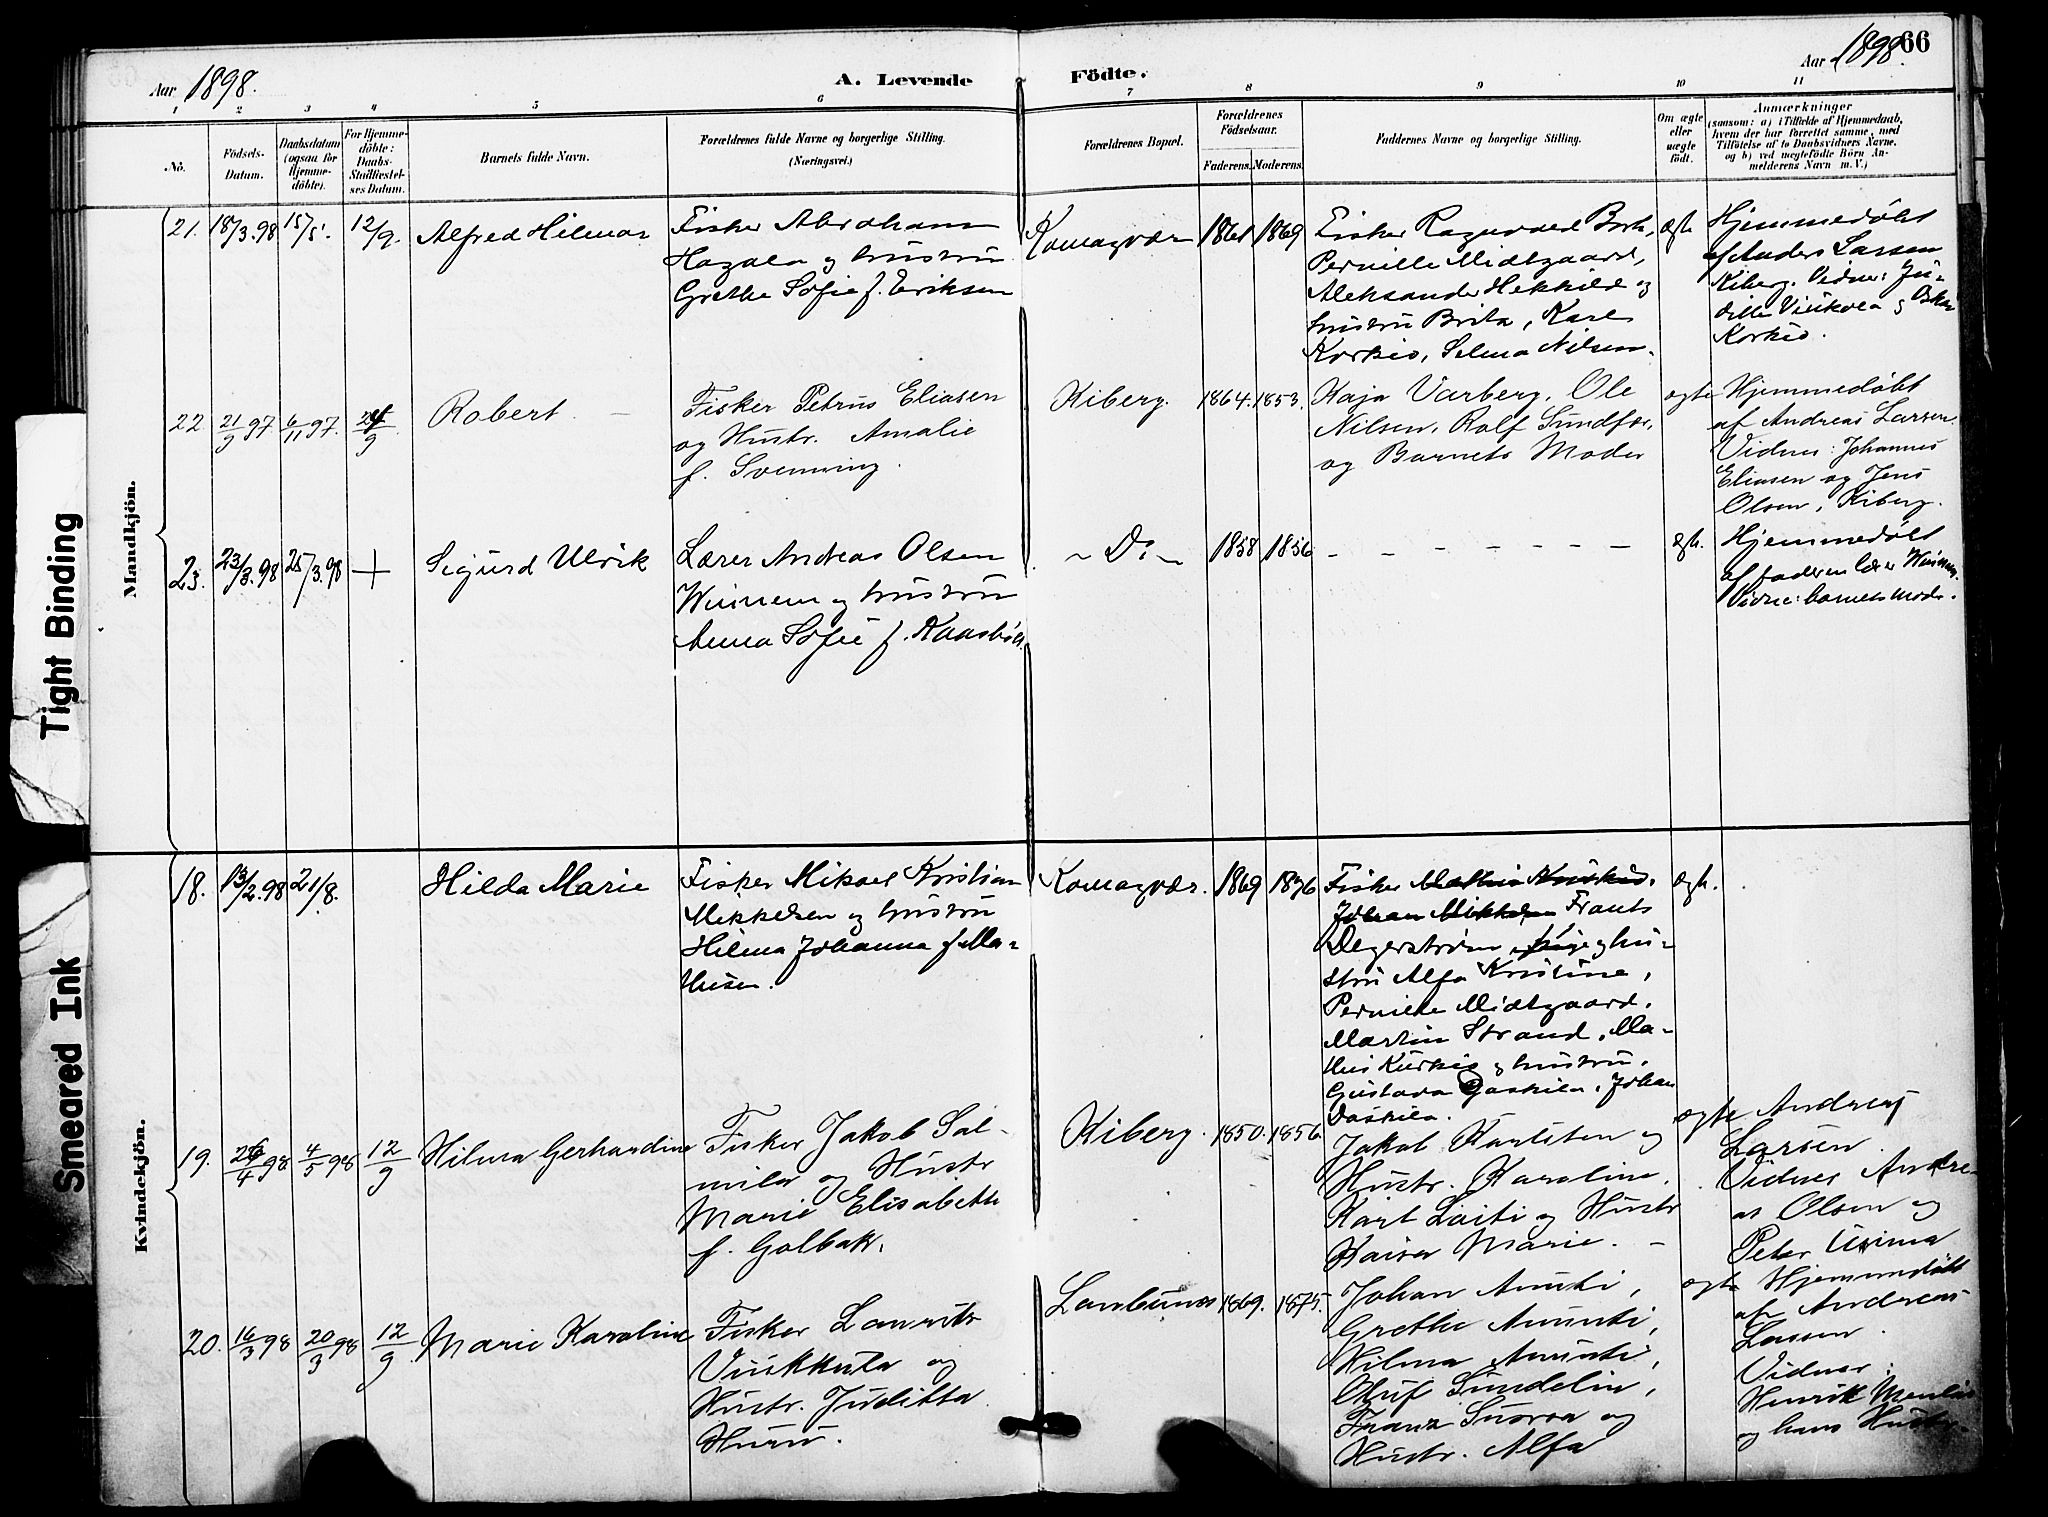 66
Aar 1898.
A. Levende
Födte.
Aar 1898.
1 2 3 4 5 6 7 8 9 10 11
No.
Födsels-
Datum.
Daabsdatum
(ogsaa for
Hjemme-
döbte).
For Hjemme-
döbte:
Daabs-
Stadfæstel-
ses Datum.
Barnets fulde Navn.
Forældrenes fulde Navne og borgerlige Stilling.
(Næringsvei.)
Forældrenes Bopæl.
Forældrenes
Födselsaar.
Faderens. Moderens.
Faddernes Navne og borgerlige Stilling.
Om ægte
eller
uægte
födt.
Anmærkninger
(saasom: a) i Tilfælde af Hjemmedaab,
hvem der har forrettet samme, med
Tilföielse af to Daabsvidners Navne,
og b) ved uægtefödte Börn An-
melderens Navn m. V.)
Mandkjön.
21. 18/3.98 15/5. 12/9. Alfred Hilmar
Fisker Abraham
Hagala og hustru
Grethe Sofie f. Eriksen
Komagvær 1861 1869
Fisker Ragnvald Bork,
Pernille Midtgaard,
Aleksander Hekkild og
hustru Brita, Karl
Korkio, Selma Nilsen.
ægte
Hjemmedøbt
af Anders Larsen
Kiberg. Vidner: Ju-
Korkio.
22 21/9 97. 6/11 97. 24/9. Robert –
Fisker Petrus Eliasen
og Hustr. Amalie
f. Svenning.
Kiberg. 1864. 1853.
Kaja Varberg, Ole
Nilsen, Rolf Sundfær,
og Barnets Moder
ægte
Hjemmedøbt
af Andreas Larsen.
Vidner: Johannes
Eliasen og Jens
Olsen, Kiberg.
23. 23/3.98 25/3.98 + Sigurd Ulrik
Lærer Andreas Olsen
og hustru
Anna Sofie f. Kaasbøll.
~ Do ~ 1858 1856 – – – – – – –
ægte.
Hjemmedøbt
af faderen lærer
Vidne: barnets moder.
Kvindekjön.
18. 13/2.98 21/8. Hilda Marie
Fisker Mikael Kristian
Mikkelsen og hustru
Hilma Johanna f. Ma-
thisen.
Komagvær. 1869 1876
Fisker
Johan Mikkelsen Frants
Degerstrøm og hu-
stru Alfa Kristine,
Pernille Midtgaard.
Martin Strand, Ma-
this Kurkio og hustru.
Gustava Daskila, Johan
Daskila.
ægte.
19. 26/4 98 4/5 98 12/9 Hilma Gerhardine
Fisker Jakob Sal-
mila og Hustr
Marie Elisabeth
f. Golbak.
Kiberg. 1850. 1856.
Jakob Karlsten og
Hustr. Karoline.
Karl Laiti og Hustr
Kaisa Marie. –
ægte
Andreas
Larsen.
Vidner Andre-
as Olsen og
Peter
20. 16/3 98 20/3 98 12/9 Marie Karoline
Fisker Laurits
og
Hustr. Juditta
Huru.
Langbunes 1869. 1875.
Johan Anunti,
Grethe Anunti,
Hilma Anunti,
Oluf Sundelin,
Franz Susraa og
Hustr. Alfa
ægte
Hjemmedøbt
af Andreas
Larsen.
Vidner:
Henrik
og hans Hustr.
Tight Binding
Smeared Ink